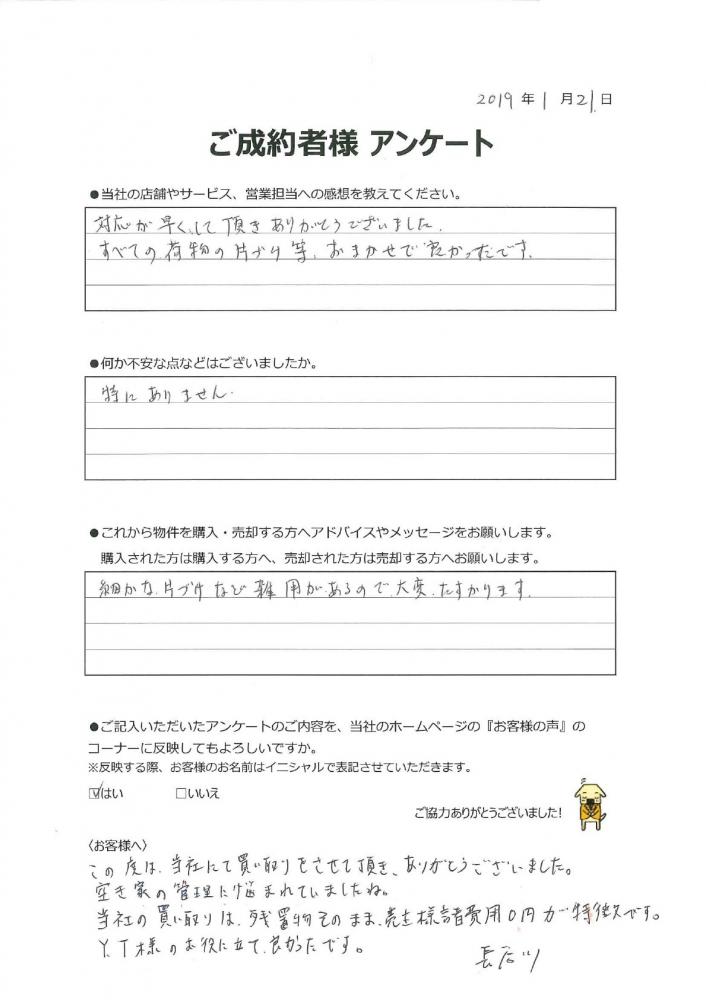 2019年1月21日
ご成約者様 アンケート
●当社の店舗やサービス、営業担当への感想を教えてください。
対応が早くして頂きありがとうございました.
すべての荷物の片づけ等、おまかせで良かったです.
●何か不安な点などはございましたか。
特にありません.
●これから物件を購入・売却する方へアドバイスやメッセージをお願いします。
購入された方は購入する方へ、売却された方は売却する方へお願いします。
細かな片づけなど雑用があるので大変たすかります.
●ご記入いただいたアンケートのご内容を、当社のホームページの『お客様の声』の
コーナーに反映してもよろしいですか。
※反映する際、お客様のお名前はイニシャルで表記させていただきます。
☑はい □いいえ
ご協力ありがとうございました!
〈お客様へ〉
この度は、当社にて買い取りをさせて頂き、ありがとうございました。
空き家の管理に悩まれていましたね。
当社の買い取りは、残置物そのまま、売主様諸費用0円が特徴です。
Y.T様のお役に立て、良かったです。
長谷川